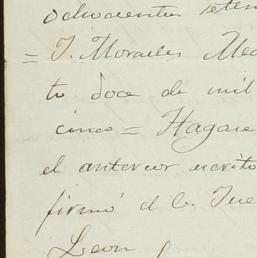 ochocientos seten
= J. Morales Med
to doce de mil
cinco = Hagase
el anterior escrito
firmó el C. Jue
Leon